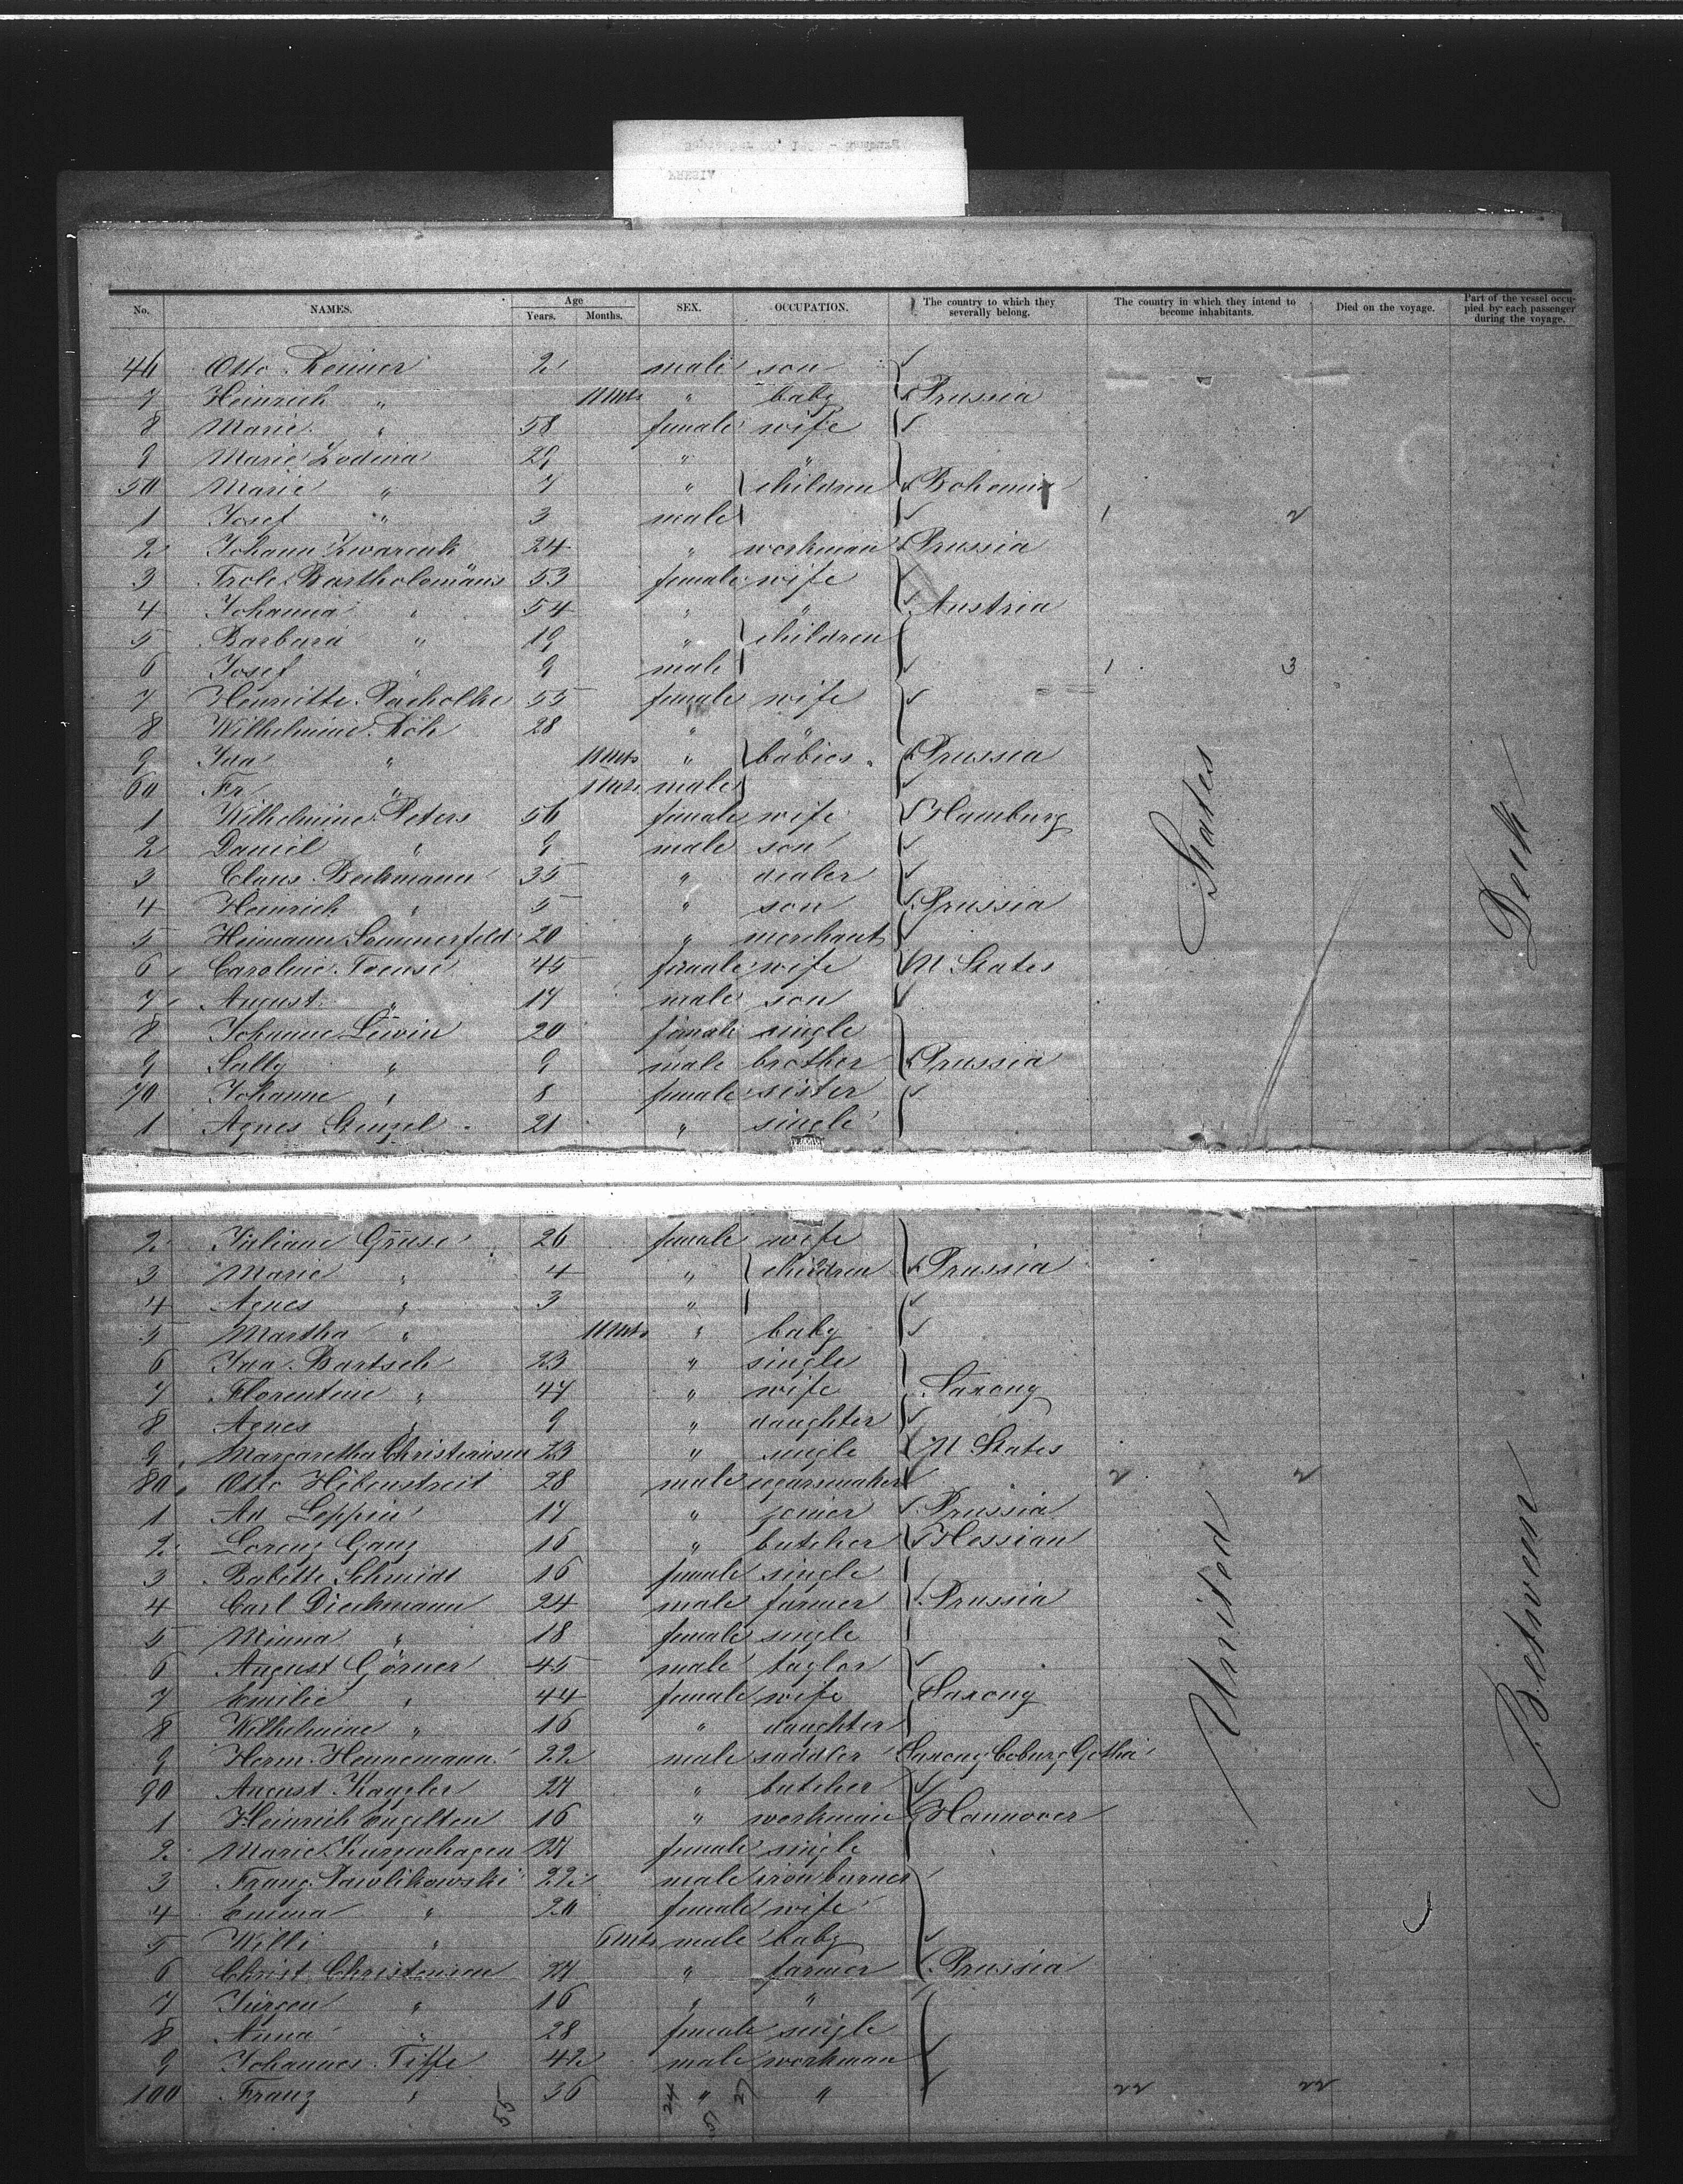 No. NAMES. Age Years. Months. SEX. OCCUPATION. The country to which they severally belong. The country in which they intend to become inhabitants. Died on the voyage. Part of the vessel occupied by each passenger during the voyage.
46 Otto Renner 2 male son
7 Heinrich " 11 Mts " baby Prussia
8 Marie " 58 female wife
9 Marie Zodina 29 " "
50 Marie " 7 " children Bohemia
1 Josef " 3 male 1 2
2 Johann Zwarcuk 24 " workman Prussia
3 Trole Bartholomäus 53 female wife
4 Johanna " 54 " " Austria
5 Barbara " 19 " children
6 Josef " 9 male 1 3
7 Henriette Pacholke 55 female wife
8 Wilhelmine Röh 28 " "
9 Ida " 11 Mts " babies Prussia
60 Fr. " 1 Mts male
1 Wilhelmine Peters 56 female wife Hamburg
2 Daniel " 9 male son
3 Claus Beckmann 35 " dealer
4 Heinrich " 5 " son Prussia
5 Heimann Sommerfeld 20 " merchant
6 Caroline Toense 45 female wife U States
7 August " 17 male son
8 Johanne Lewin 20 female single
9 Sally " 9 male brother Prussia
70 Johanne " 8 female sister
1 Agnes Stenzel 21 " single
2 Juliane Gruse 26 female wife
3 Marie " 4 " children Prussia
4 Agnes " 3 "
5 Martha " 11 Mts " baby
6 Ida Bartsch 23 " single
7 Florentine " 47 " wife Saxony
8 Agnes " 9 " daughter
9 Margaretha Christensen 23 " single U States
80 Otto Hebenstreit 28 male cigarsmaker 2 2
1 Ad Leppin 17 " joiner Prussia
2 Lorenz Ganz 16 " butcher Hessian
3 Babette Schmidt 16 female single
4 Carl Dieckmann 24 male farmer Prussia
5 Minna " 18 female single
6 August Görner 45 male taylor
7 Emilie " 44 female wife Saxony
8 Wilhelmine " 16 " daughter
9 Herm. Hennemann 22 male saddler Saxony Coburg Gotha
90 August Kaggler 24 " butcher
1 Heinrich Engelten 16 " workman Hannover
2 Marie Kurzenhagen 24 female single
3 Franz Pawlikowski 22 male ironburner
4 Emma " 20 female wife
5 Willi " 6 Mts male baby
6 Christ. Christensen 24 " farmer Prussia
7 Jürgen " 16 " "
8 Anna " 28 female single
9 Johannes Tiffe 42 male workman
100 Franz " 36 " " 22 22
55 24 5
United States
Between Deck